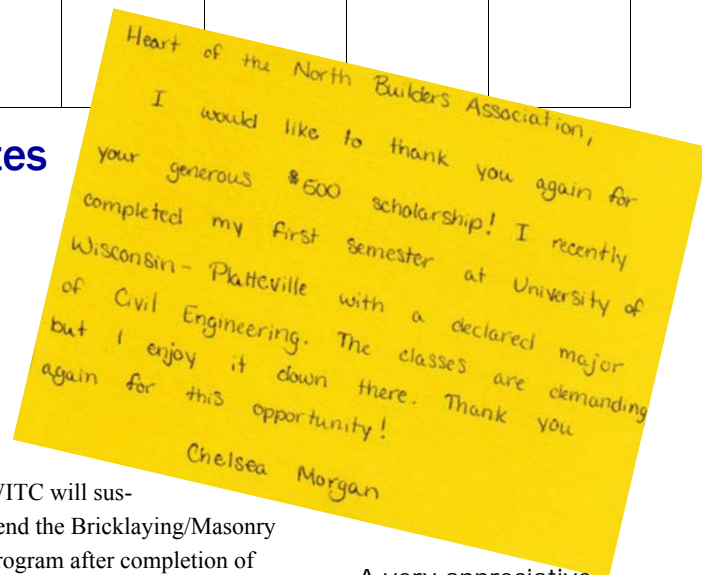 tes
Heart of the North Builders Association,
I would like to thank you again for
your generous $500 scholarship! I recently
completed my first semester at University of
Wisconsin - Platteville with a declared major
of Civil Engineering. The classes are demanding
but I enjoy it down there. Thank you
again for this opportunity!
Chelsea Morgan
ITC will sus-
end the Bricklaying/Masonry
rogram after completion of
A very appreciative